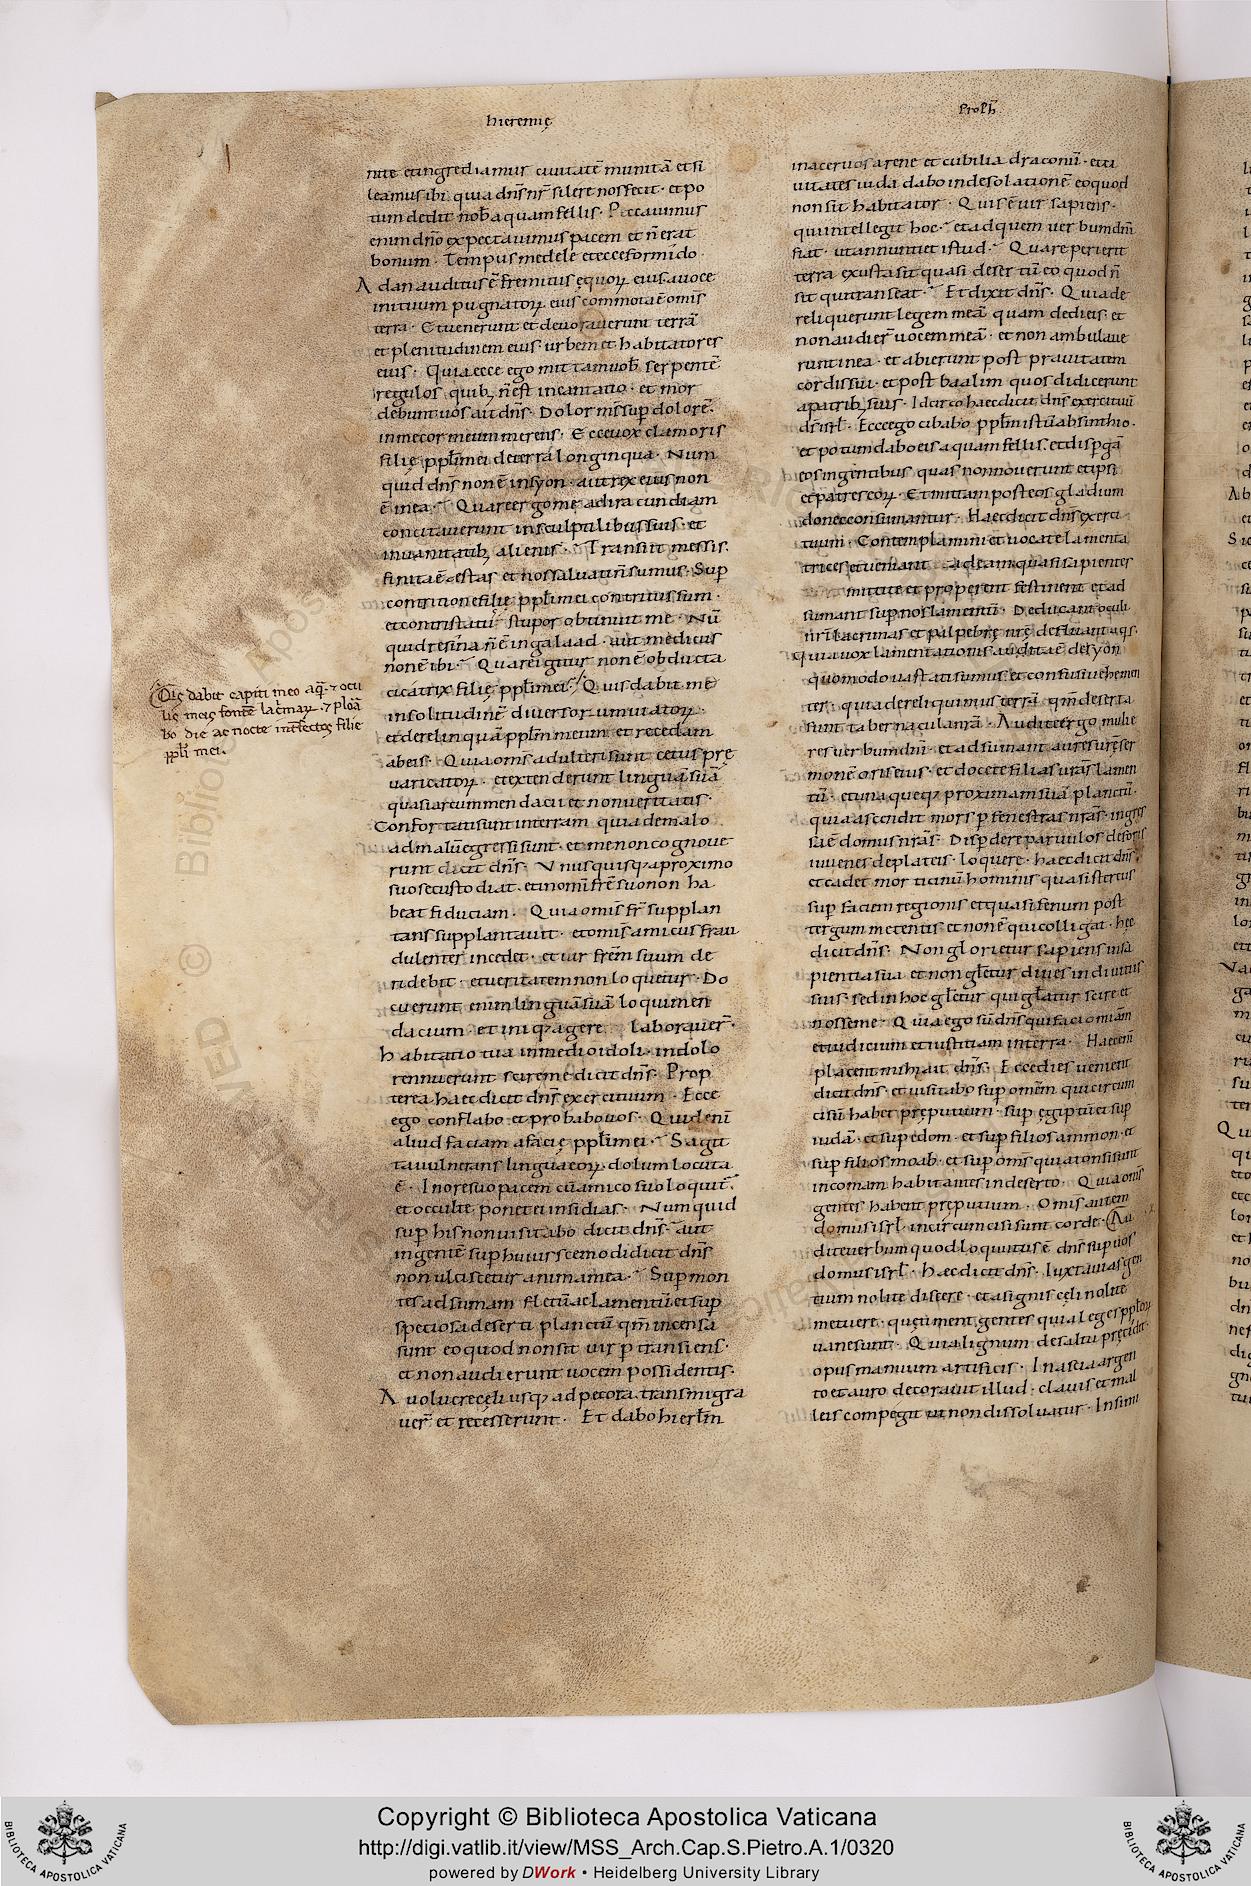 hieremię
proph̄
nite et ingrediamur ciuitatē munitā et si
leamus ibi quia dn̄s nr̄ silere nos fecit · et po
tum dedit nob̄ aquam fellis · Peccauimus
enim dn̄o expectauimus pacem et n̄ erat
bonum · Tempus medele et ecce formido ·
A dan auditus ē fremitus equoꝝ eius · a uoce
inituum pugnatoꝝ eius commota ē omis
terra · Et uenerunt et deuorauerunt terrā
et plenitudinem eius · urbem et habitatores
eius · Quia ecce ego mittam uob̄ serpentē
regulos quibꝫ n̄ est incantatio · et mor
debunt uos ait dn̄s · Dolor m̄s sup̄ dolorē ·
in me cor meum merens · Ecce uox clamoris
filię ppl̄i mei de terra longinqua · Num
quid dn̄s non ē in syon · aut rex eius non
ē in ea · Quare ergo me ad iracundiam
concitauerunt in sculptilibus suis · et
in uanitatibꝫ alienis · Transiit messis
finita ē estas et nos saluati n̄ sumus · Sup̄
contritione filię ppl̄i mei contritus sum ·
et contristatus stupor obtinuit me · Nū
quid resina n̄ ē in galaad · aut medicus
non ē ibi · Quare igitur non ē obducta
cicatrix filię ppl̄i mei · Quis dabit me
in solitudinē diuersorium uiatoꝝ ·
et derelinquā pplm̄ meum et recedam
ab eis · Quia oms̄ adulteri sunt cetus prę
uaricatoꝝ · et extenderunt linguā suā
quasi arcum mendacii et non ueritatis ·
Confortati sunt in terram quia de malo
ad malū egressi sunt · et me non cognoue
runt dicit dn̄s · Unusquisqꝫ a proximo
suo se custodiat · et in omī frē suo non ha
beat fiduciam · Quia omis fr̄ supplan
tans supplantauit · et omis amicus frau
dulenter incedet · et uir frēm suum de
ridebit · et ueritatem non loquetur · Do
cuerunt enim linguā suā loqui men
dacium · et iniqꝫ agere laborauer̄ ·
H abitatio tua in medio idoli · in dolo
rennuerunt scire me dicit dn̄s · Prop
terea haec dicit dn̄s exercituum · Ecce
ego conflabo et probabo uos · Quid enī
aliud faciam a facię ppl̄i mei · Sagit
ta uulnerans lingua eoꝝ dolum locuta
ē · In ore suo pacem cū amico suo loquit̄
et occulte ponet ei insidias · Numquid
sup̄ his non uisitabo dicit dn̄s · aut
in gentē sup̄ huiuscemodi dicit dn̄s
non ulciscetur anima mea · Sup̄ mon
tes adsumam fletū ac lamentū et sup̄
speciosa deserti planctū qm̄ incensa
sunt eo quod non sit uir p̄ transiens ·
et non audierunt uocem possidentis ·
A uolucre cęli usqꝫ ad pecora transmigra
uer̄ et recesserunt · Et dabo hierlm̄
Qis dabit capiti meo aq̄ · ⁊ ocu
lis meis fontē lac̄maꝝ · ⁊ plorā
bo die ac nocte int̄fectos filie
ppl̄i mei ·
in aceruos arene et cubilia draconū · et ci
uitates iuda dabo in desolationē eo quod
non sit habitator · Quis ē uir sapiens ·
qui intellegit hoc · et ad quem uerbum dn̄i
fiat · ut annuntiet istud · Quare perierit
terra exusta sit quasi desertū eo quod n̄
sit qui transeat · Et dixit dn̄s · Quia de
reliquerunt legem meā quam dedi eis · et
non audier̄ uocem meā · et non ambulaue
runt in ea · et abierunt post prauitatem
cordis sui · et post baalim quos didicerunt
a patribꝫ suis · Idcirco haec dicit dn̄s exercituū
ds̄ isrl̄ · Ecce ego cibabo pplm̄ istū absinthio ·
et potum dabo eis aquam fellis · et disp̄gā
eos in gentibus quas non nouerunt et ipsi
et patres eoꝝ · Et mittam post eos gladium
donec consumantur · Haec dicit dn̄s exerci
tuum · Contemplamini et uocate lamenta
trices et ueniant · et ad eam quasi sapientes
mittite et properent festinent et ad
sumant sup̄ nos lamentū · Deducant oculi
nr̄i lacrimas et palpebrę nrę̄ defluant aqs ·
Quia uox lamentationis audita ē de syon
quomodo uastati sumus et confusi uehemen
ter · quia dereliquimus terrā · qm̄ deserta
sunt tabernacula nrā · Audite ergo mulie
res uerbum dn̄i · et adsumant aures urę̄ ser
monē oris eius · et docete filias urās lamen
tū · et unaqueqꝫ proximam suā planctū ·
quia ascendit mors p̄ fenestras nrās · ingres
sa ē domus nrās · Disp̄dere paruulos de foris
iuuenes de plateis · loquere · haec dicit dn̄s ·
et cadet morticinū hominis quasi stercus
sup̄ faciem regionis et quasi fenum post
tergum metentis et non ē qui colligat · hęc
dicit dn̄s · Non glorietur sapiens in sa
pientia sua et non gl̄etur diues in diuitiis
suis · sed in hoc gl̄etur qui gl̄atur scire et
nosse me · Quia ego sū dn̄s qui facio mīam
et iudicium et iustitiam in terra · Haec enī
placent mihi ait dn̄s · Ecce dies ueniunt
dicit dn̄s · et uisitabo sup̄ omēm qui circum
cisū habet pręputium · sup̄ egiptū et sup̄
iudā · et sup̄ edom · et sup̄ filios ammon · et
sup̄ filios moab · et sup̄ oms̄ qui attonsi sunt
in comam habitantes in deserto · Quia oms̄
gentes habent pręputium · Omis autem
domus isrl̄ incircumcisi sunt corde · Au
dite uerbum quod locutus ē dn̄s sup̄ uos
domus isrl̄ · Haec dicit dn̄s · Iuxta uias gen
tium nolite discere · et a signis cęli nolite
metuere · quę timent gentes quia leges pplōꝝ
uanę sunt · Quia lignum de saltu pręcidit
opus manuum artificis · In ascia argen
to et auro decorauit illud · clauis et mal
leis compegit ut non dissoluatur · In simi
Copyright © Biblioteca Apostolica Vaticana
http://digi.vatlib.it/view/MSS_Arch.Cap.S.Pietro.A.1/0320
powered by DWork • Heidelberg University Library
BIBLIOTECA APOSTOLICA VATICANA
BIBLIOTECA APOSTOLICA VATICANA